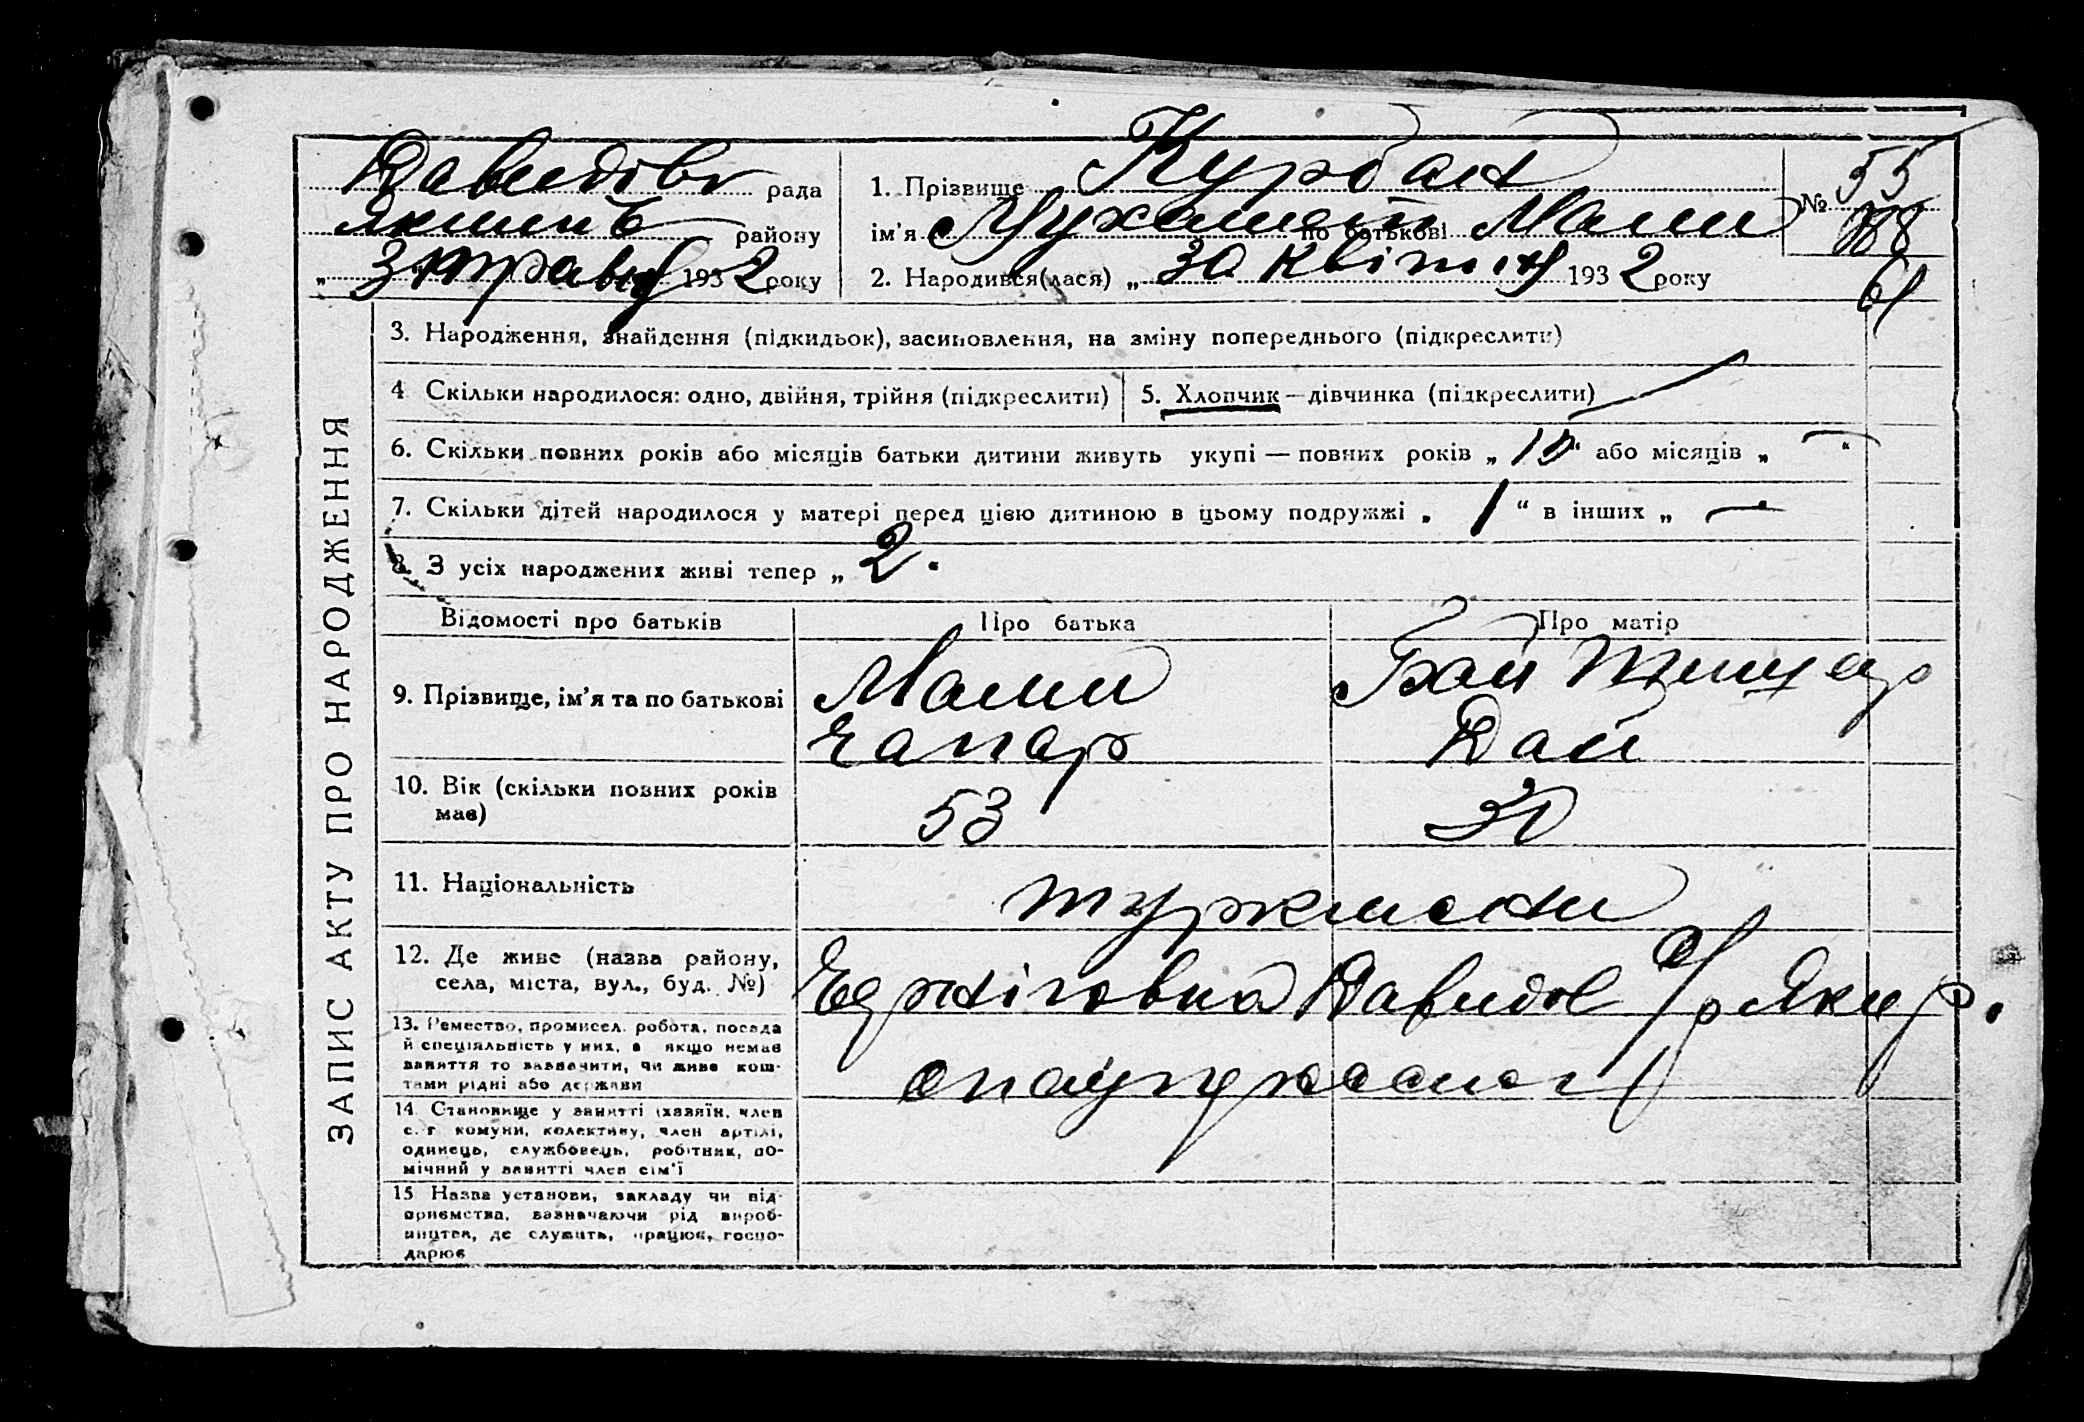 Давидівс рада
Якимів району
„ 3 травня 1932 року
1. Прізвище Курбан
ім'я Мухамет по батькові Мами
2. Народився(лася) „ 30 квітня 1932 року
№ 55
61
ЗАПИС АКТУ ПРО НАРОДЖЕННЯ
3. Народження, знайдення (підкидьок), засиновлення, на зміну попереднього (підкреслити)
4 Скільки народилося: одно, двійня, трійня (підкреслити)
5. Хлопчик — дівчинка (підкреслити)
6. Скільки повних років або місяців батьки дитини живуть укупі — повних років „ “ або місяців „ — “
7. Скільки дітей народилося у матері перед цією дитиною в цьому подружжі „ 1 “ в інших „ —
8. З усіх народжених живі тепер „ 2.
Відомості про батьків
Про батька
Про матір
9. Прізвище, ім'я та по батькові
Мами
Чапар
Бай
Дай
10. Вік (скільки повних років
має)
53
30
11. Національність
туркмени
12. Де живе (назва району,
села, міста, вул., буд. №)
Давидов с/р Яки р.
13. Ремество, промисел, робота, посада
й спеціяльність у них, а якщо немає
заняття то зазначити, чи живе кош-
тами рідні або держави
14. Становище у занятті (хазяїн, член
с.-г комуни, колективу, член артілі,
одинець, службовець, робітник, по-
мічний у занятті член сім'ї
15 Назва установи, закладу чи під-
приємства, зазначаючи рід вироб-
ництва, де служить, працює, госпо-
дарює